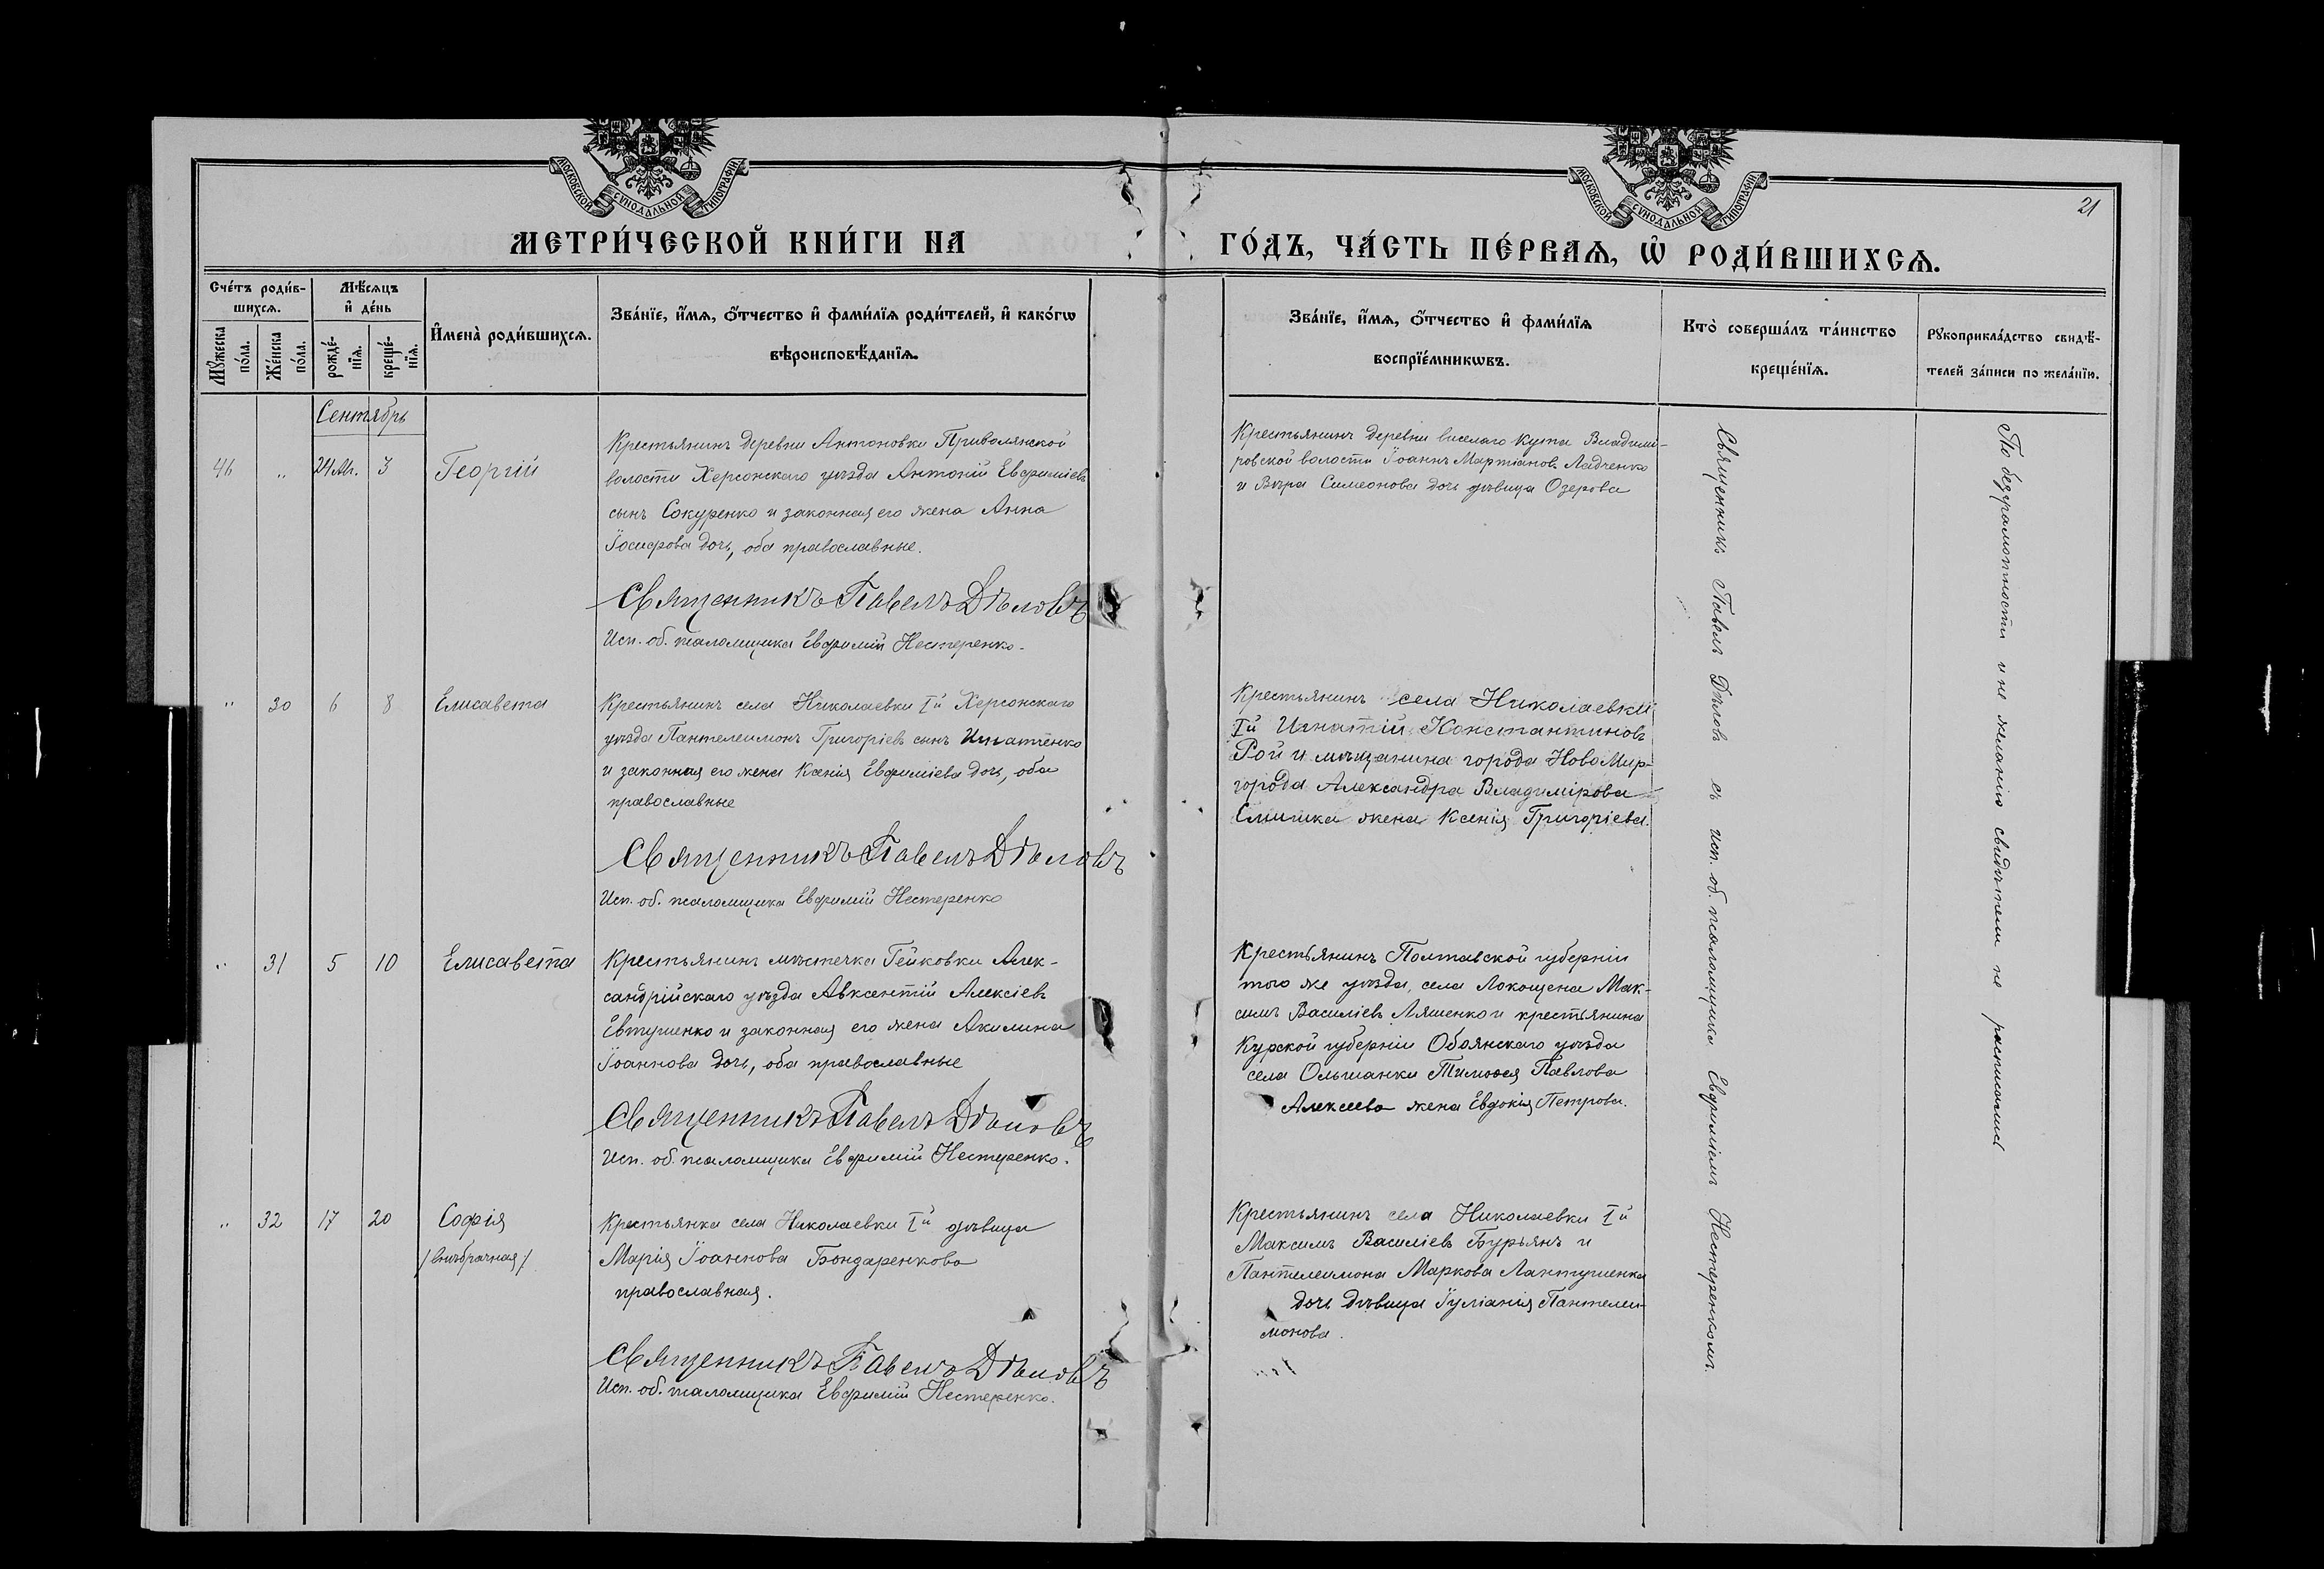 МОСКОВСКОЙ СѴНОДАЛЬНОЙ ТИПОГРАФІИ
МОСКОВСКОЙ СѴНОДАЛЬНОЙ ТИПОГРАФІИ
21
МЕТРИ́ЧЕСКОЙ КНИ́ГИ НА
ГО́ДЪ, ЧА́СТЬ ПЕ́РВАѦ, Ѡ҆ РОДИ́ВШИХСѦ.
Сче́тъ роди́в-
шихсѧ.
Мꙋ́жеска
по́ла.
Же́нска
по́ла.
Мѣ́сѧцъ
и҆ де́нь
рожде́-
нїѧ.
креще́-
нїѧ.
И҆мена̀ роди́вшихсѧ.
Зва́нїе, и҆́мѧ, ѻ҆́тчество и҆ фами́лїѧ роди́телей, и҆ како́гѡ
вѣроисповѣ́данїѧ.
Зва́нїе, и҆́мѧ, ѻ҆́тчество и҆ фами́лїѧ
воспрїе́мникѡвъ.
Кто̀ соверша́лъ та́инство
креще́нїѧ.
Рꙋкоприкла́дство свидѣ́-
телей за́писи по жела́нїю.
Сентябрь
46 " 24 Ав. 3 Георгій
Крестьянинъ деревни Антоновки Привольянской
волости Херсонскаго уѣзда Антоній Евфиміевъ
сынъ Сокуренко и законная его жена Анна
Іосифова дочь, оба православные.
Священникъ Павелъ Дѣловъ
Исп. об. псаломщика Евфимій Нестеренко.
Крестьянинъ деревни Виселаго Кута Владими-
ровской волости Іоаннъ Мартіановъ Ладченко
и Вѣра Симеонова дочь дѣвица Озерова
" 30 6 8 Елисавета
Крестьянинъ села Николаевки Iй Херсонскаго
уѣзда Пантелеимонъ Григоріевъ сынъ Игнатенко
и законная его жена Ксенія Евфиміева дочь, оба
православные
Священникъ Павелъ Дѣловъ
Исп. об. псаломщика Евфимій Нестеренко
Крестьянинъ села Николаевки
Iй Игнатій Константиновъ
Рой и мѣщанина города НовоМир-
города Александра Владимірова
жена Ксенія Григоріева.
" 31 5 10 Елисавета
Крестьянинъ мѣстечка Гейковки Алек-
сандрійскаго уѣзда Авксентій Алексіевъ
Евтушенко и законная его жена Акилина
Іоаннова дочь, оба православные
Священникъ Павелъ Дѣловъ
Исп. об. псаломщика Евфимій Нестеренко.
Крестьянинъ Полтавской губерніи
того же уѣзда, села Локощена Мак-
симъ Василіевъ Ляшенко и крестьянина
Курской губерніи Обоянскаго уѣзда
села Ольшанки Тимоѳея Павлова
Алексеева жена Евдокія Петрова.
" 32 17 20 Софія
/внѣбрачная/
Крестьянка села Николаевки Iй дѣвица
Марія Іоаннова Бондаренкова
православная.
Священникъ Павелъ Дѣловъ
Исп. об. псаломщика Евфимій Нестеренко.
Крестьянинъ села Николаевки Iй
Максимъ Василіевъ Бурьянъ и
Пантелеимона Маркова Лантушенка
дочь дѣвица Іуліанія Пантелеи-
монова.
Священникъ Павелъ Дѣловъ съ исп. об. псаломщика Евфиміемъ Нестеренкомъ.
По безграмотности и не желанію свидѣтели не расписались